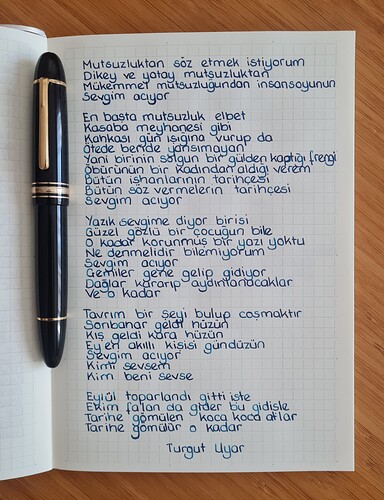 Mutsuzluktan söz etmek istiyorum
Dikey ve yatay mutsuzluktan
Mükemmel mutsuzluğundan insansoyunun
Sevgim acıyor
En başta mutsuzluk elbet
Kasaba meyhanesi gibi
Kahkası gün ışığına vurup da
Ötede beride yansımayan
Yani birinin solgun bir gülden kaptığı frengi
Öbürünün bir kadından aldığı verem
Bütün işhanlarının tarihçesi
Bütün söz vermelerin tarihçesi
Sevgim acıyor
Yazık sevgime diyor birisi
Güzel gözlü bir çocuğun bile
O kadar korunmuş bir yazı yoktu
Ne denmelidir bilemiyorum
Sevgim acıyor
Gemiler gene gelip gidiyor
Dağlar kararıp aydınlanacaklar
Ve o kadar
Tavrım bir şeyi bulup coşmaktır
Sonbahar geldi hüzün
Kış geldi kara hüzün
Ey en akıllı kişisi gündüzün
Sevgim acıyor
Kimi sevsem
Kim beni sevse
Eylül toparlandı gitti işte
Ekim falan da gider bu gidişle
Tarihe gömülen koca koca atlar
Tarihe gömülür o kadar
Turgut Uyar